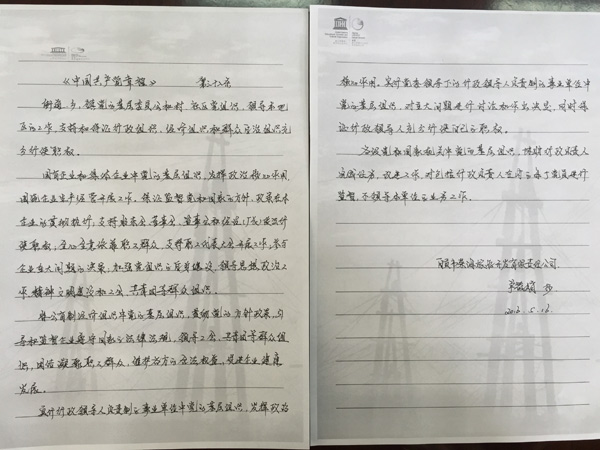 《中国共产党章程》 第三十二条
街道、乡、镇党的基层委员会和村、社区党组织，领导本地
区的工作，支持和保证行政组织、经济组织和群众自治组织充
分行使职权。
国有企业和集体企业中党的基层组织，发挥政治核心作用，
围绕企业生产经营开展工作。保证监督党和国家的方针、政策在本
企业的贯彻执行；支持股东会、董事会、监事会和经理（厂长）依法行
使职权；全心全意依靠职工群众，支持职工代表大会开展工作；参与
企业重大问题的决策；加强党组织的自身建设，领导思想政治工
作、精神文明建设和工会、共青团等群众组织。
非公有制经济组织中党的基层组织，贯彻党的方针政策，引
导和监督企业遵守国家的法律法规，领导工会、共青团等群众组
织，团结凝聚职工群众，维护各方的合法权益，促进企业健康
发展。
实行行政领导人负责制的事业单位中党的基层组织，发挥政治
核心作用。实行党委领导下的行政领导人负责制的事业单位中
党的基层组织，对重大问题进行讨论和作出决定，同时保
证行政领导人充分行使自己的职权。
各级党和国家机关中党的基层组织，协助行政负责人
完成任务，改进工作，对包括行政负责人在内的每个党员进行
监督，不领导本单位的业务工作。
旅游开发有限责任公司
2016.5.16